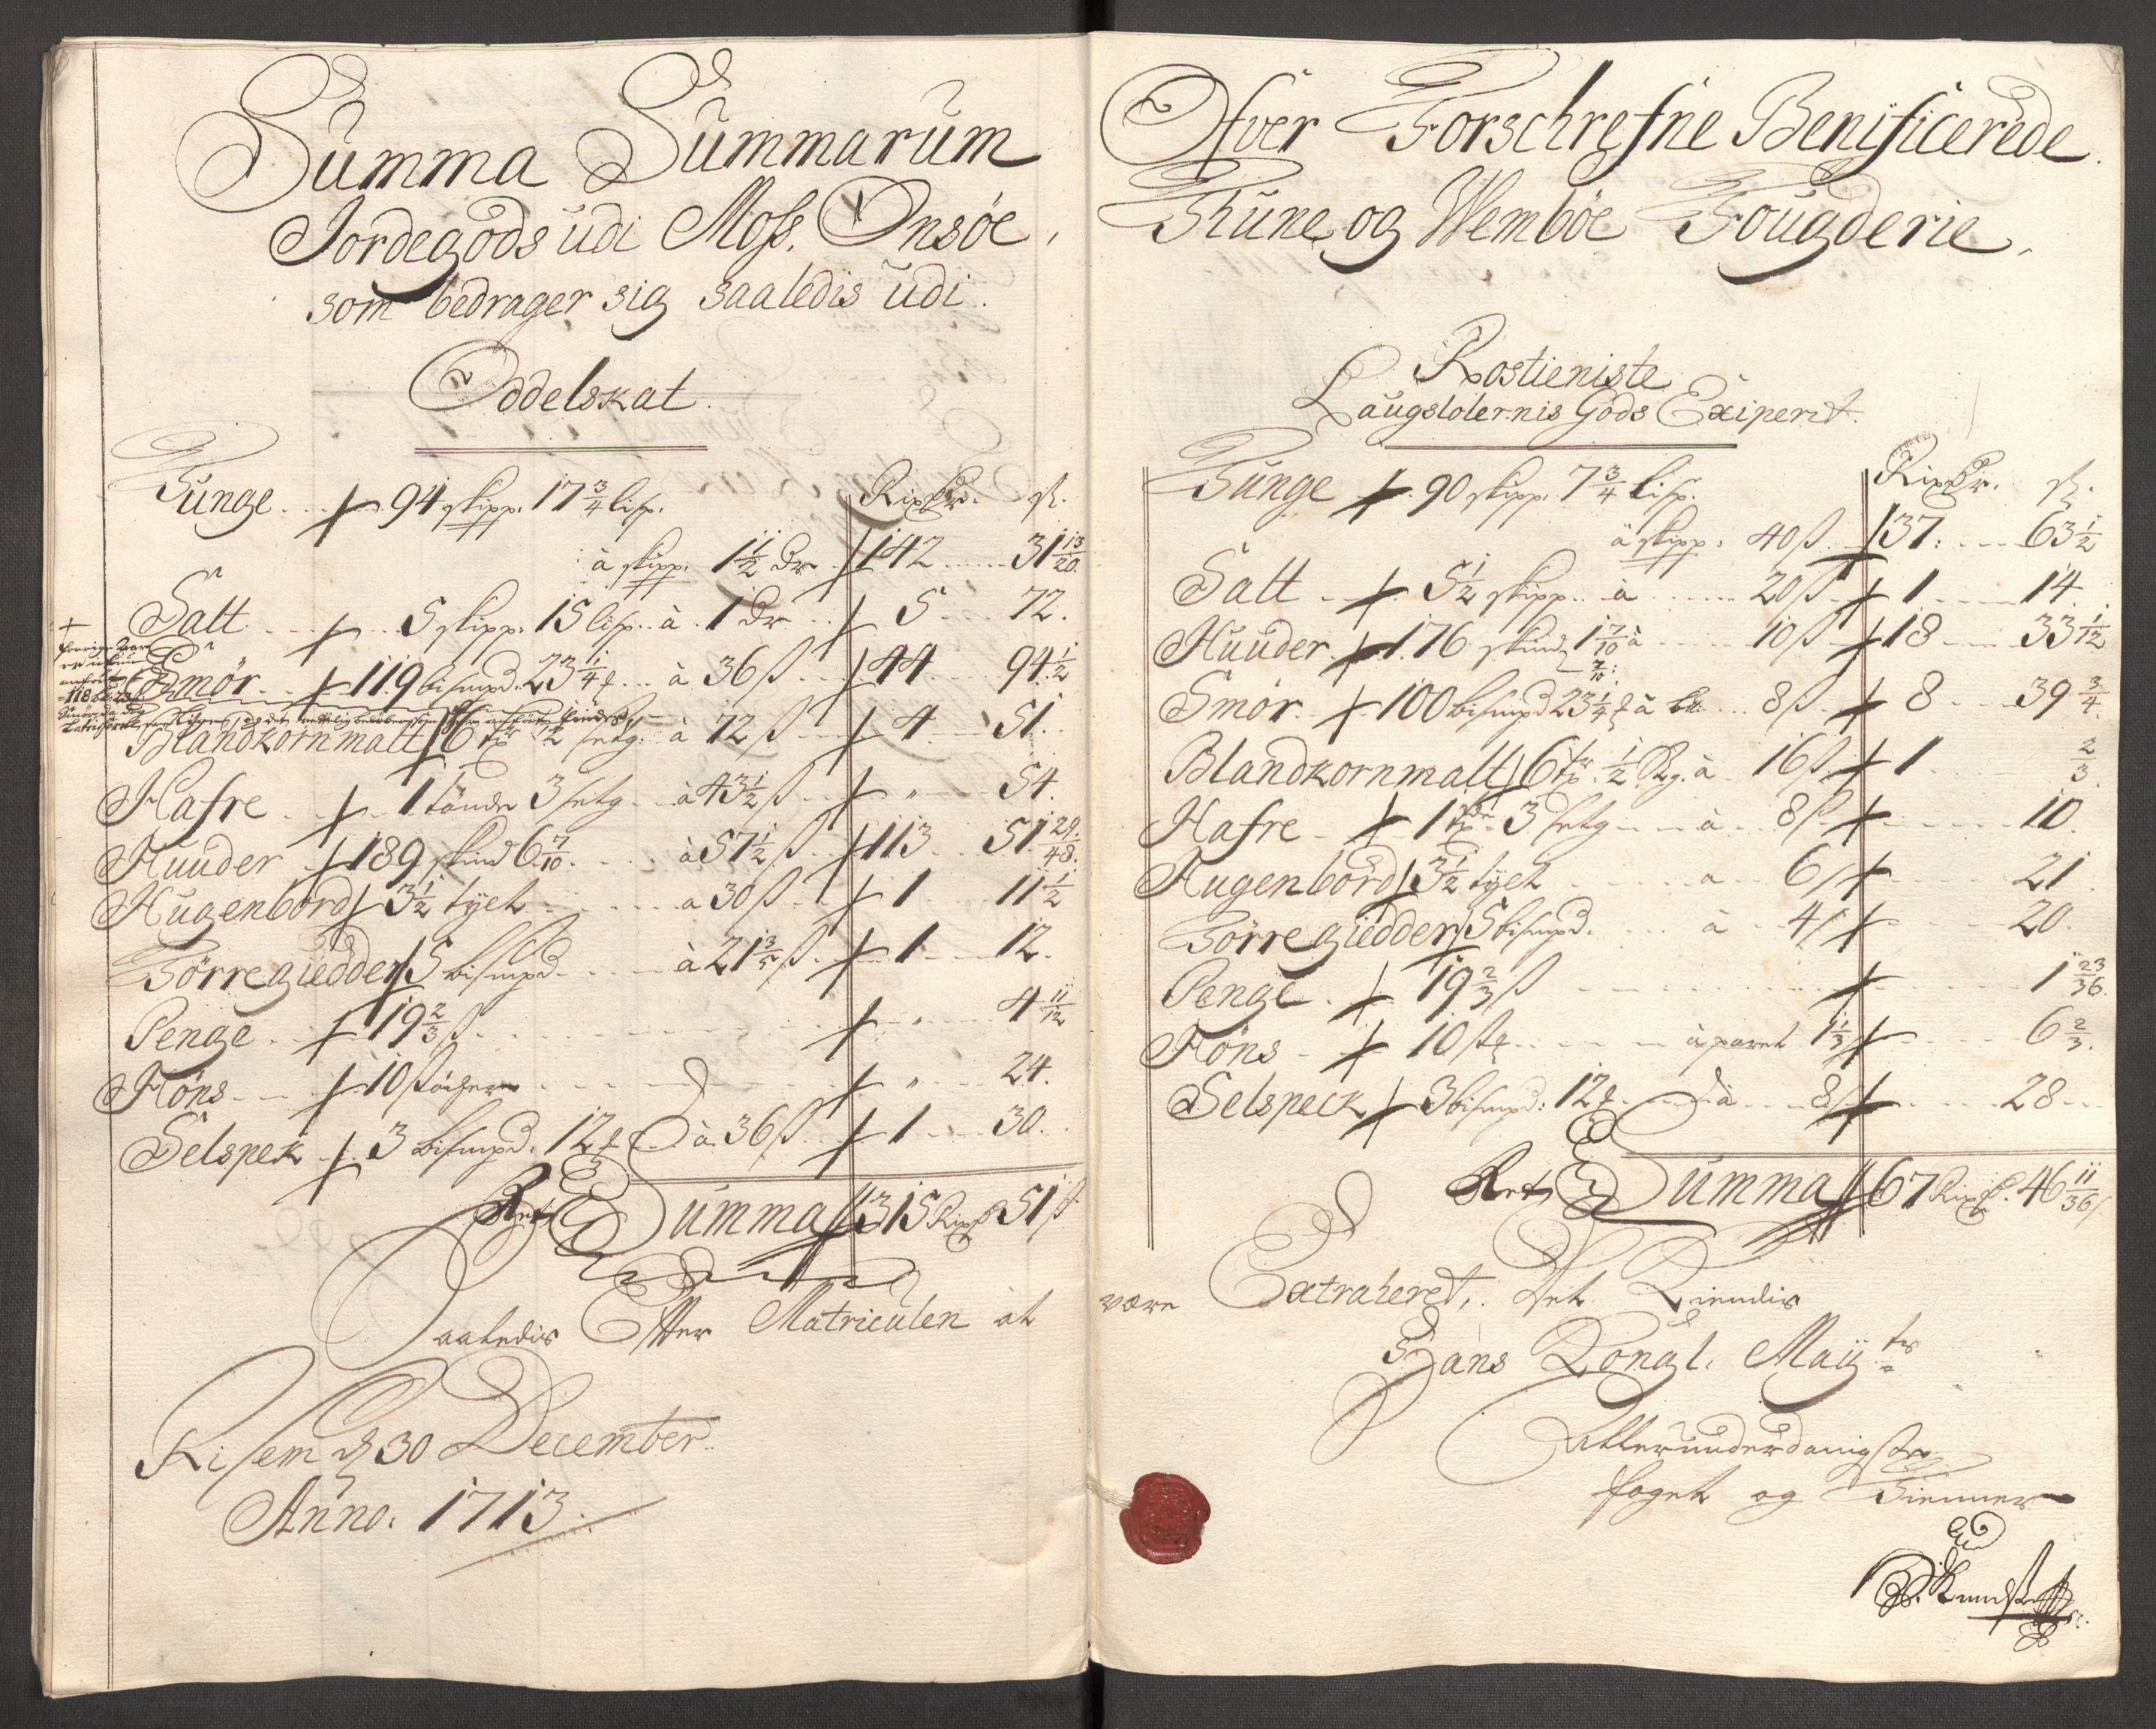 Summa Summarum
Jordegods udi Moss, Onsöe,
som bedrager sig saaledis udi
Oddelskat.
Rixdr. ß.
Tunge 94 skipp. 17 3/4 lisp.
à skipp. 1 1/2 dr 142 31 13/20
Salt 5 skipp. 15 lisp. à 1 dr 5 72.
Smör 119 bismpd. 23 1/4 à 36 ß 44 94 1/2
Blandkornmalt 6 à 72 ß 4 51.
Hafre 1 tönde 3 setg à 43 1/2 ß " 54.
Huuder 189 skind 6 7/10 à 57 1/2 ß 113 51 29/48.
Hugenbord 3 1/2 tyet à 30 ß 1 11 1/2
Törre giedder 5 bismpd. à 21 3/5 ß 1 12.
Penge 19 2/3 ß " 4 11/12
Höns 10 " 24.
Selspek 3 bismpd. 12 à 36 ß 1 30.
Summa 315 Rixdr 51 ß
Saaledis Efter Matriculen at
d 30 December
Anno. 1713.
Ofver Forschrefne Benificerede
Thune, og Wemböe Fougderie,
Rostieniste
Laugslolernis Gods Exiperet.
Tunge 90 skipp. 7 3/4 lisp. Rixdr. ß.
à skipp. 40 ß 37. 63 1/2
Salt 5 1/2 skipp. à 20 ß 1 14
Huuder 176 skind 1 7/10 à 10 ß 18 33 1/2
Smör 100 bismpd 23 1/4 à 8 ß 8 39 3/4.
Blandkornmalt 6 1/2 à 16 ß 1 2/3
Hafre 1 3 setg à 8 ß 10.
Hugenbord 3 1/2 tyet à 6 ß 21.
Törre giedder 5 bismpd. à 4 ß 20.
Penge 19 2/3 ß 1 23/36.
Höns 10 à paret 1 1/3 6 2/3.
Selspeck 3 bismpd. 12 à 8 ß 28
Summa 67 Rixdr. 46 11/36 ß
være Extraheret, Det Tiendis
Hans Kongl. May:ts
Allerunderdanigste
foget og Tienner